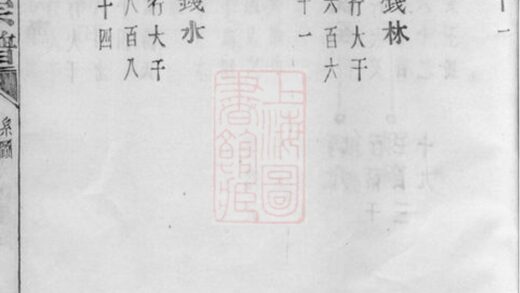 十一
錢林
行大千
六百六
十一
錢水
行大千
八百八
十四
宗譜
系圖
上海圖
書館藏